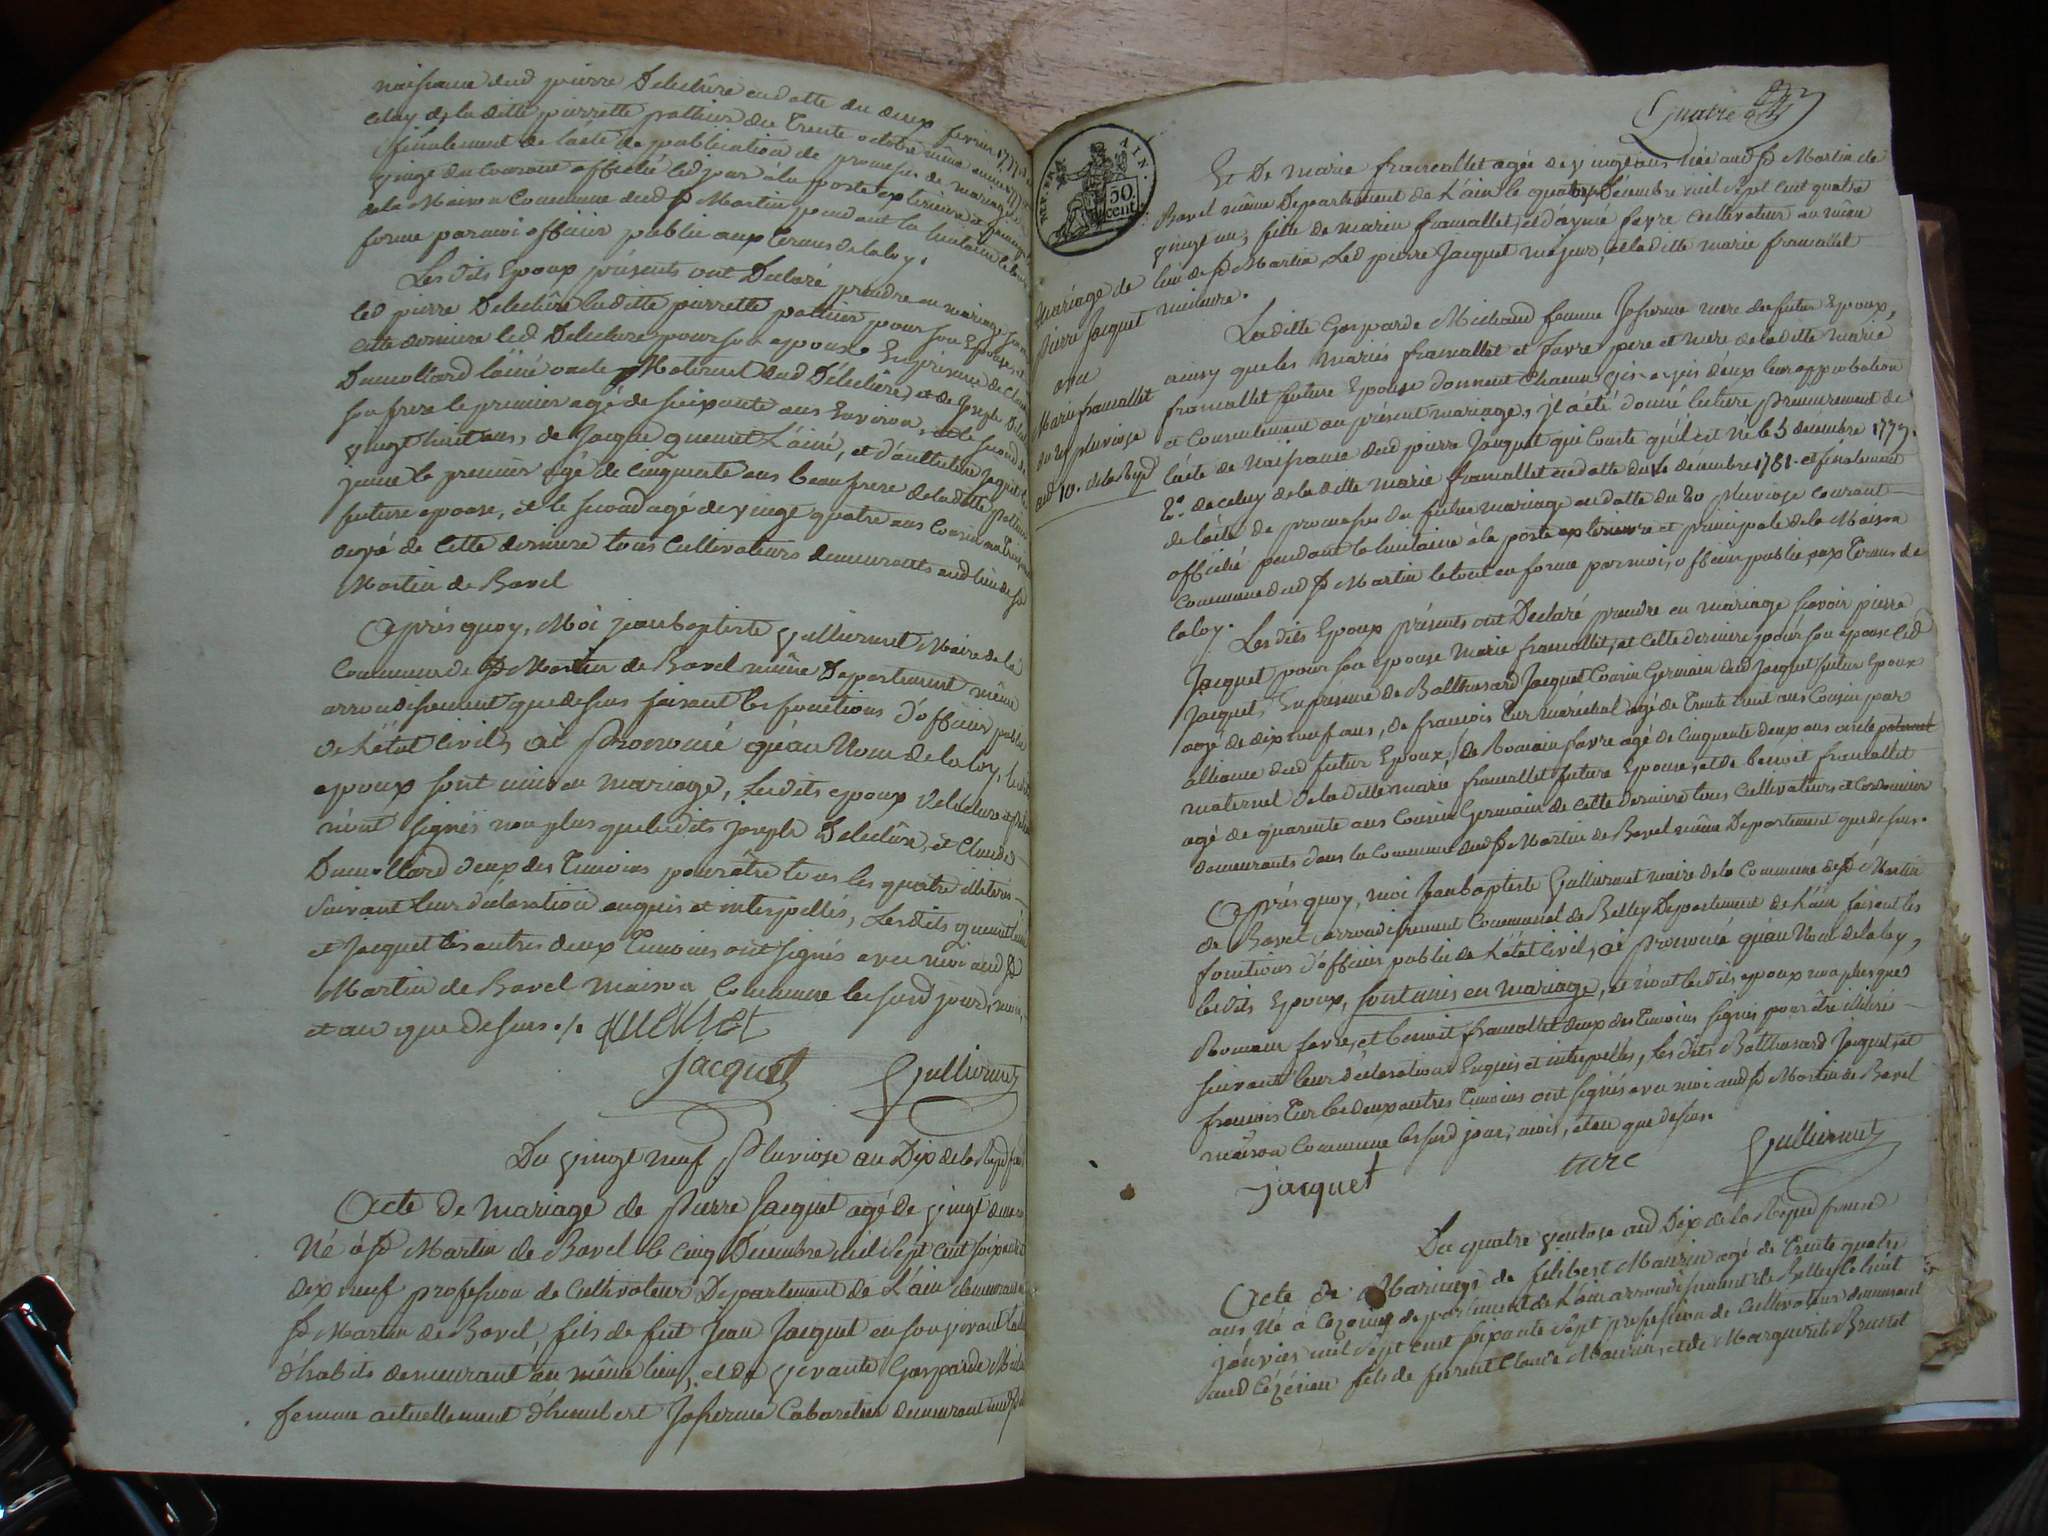 naissance dud pierre Delechère en datte du deux fevrier 177
celuy de la ditte pierrette pottier du Trente octobre même année
finalement de l'acte de publication de promesses de mariage
vingt du courant affiché led jour a la porte exterieure
de la Maison Commune dud St Martin pendant la huitaine
forme par moi officier public aux termes de la loy.
Les dits Epoux présents ont Déclaré prendre en mariage
led pierre Delechère laditte pierrette pottier pour son Epouse, et
cette derniere led Delechere pour son epoux En présence de Claude
Dumollard l'ainé oncle Maternel dud Delechère, et de Joseph
son frere le premier agé de soixante ans Environ, le second de
vingt huit ans, de Jacque quenet L'ainé, et d'anthelme Jaquet
jeune le premier agé de Cinquante ans beau frere de laditte pottier
future epouse, et le second agé de vingt quatre ans Cousin
de cette derniere tous Cultivateurs demeurants aud lieu de St
Martin de Bavel
Après quoy, Moi jean baptiste Gulliermet Maire de la
Commune de St Martin de Bavel même Departement même
arrondissement que dessus faisant les fonctions d'officier public
de L'état Civil, ai Prononcé qu'au Nom de la loy, les dits
epoux sont unis en mariage, Lesdits epoux Delechere et
n'ont signés non plus que lesdits Joseph Delechère, et Claude
Dumollard deux des Temoins pour être tous les quatre illiterés
suivant leur déclaration enquis et interpellés, Lesdits quenet
et Jacquet les autres deux Temoins ont signés avec moi aud St
Martin de Bavel maison Commune les susd jour, mois,
et an que dessus. /. quenet
jacquet Gulliermet
Du vingt neuf Pluviose an Dix de la Repub
Acte de Mariage de Pierre Jacquet agé de vingt deux
Né à St Martin de Bavel le cinq Décembre mil Sept cent soixante
dix neuf profession de Cultivateur Departement de L'ain demeurant
St Martin de Bavel, fils de feu Jean Jacquet en son vivant
d'habits demeurant au même lieu, et de vivante Gasparde
femme actuellement d'humbert Joserme Cabaretier demeurant aud St
Quatre
AIN.
50
cent.
Et De Marie framallet agée de vingt ans née aud St Martin de
Bavel même Departement de L'ain le quatorze Décembre mil Sept cent quatre
vingt un, fille de marin framallet, et d'ayme favre Cultivateur au même
lieu de St Martin, Led pierre Jacquet majeur, et laditte marie framallet
mineure.
Mariage de
Pierre Jacquet
avec
Marie framallet
du 29 pluviose
an 10. de la Repd
Laditte Gasparde Michaud femme Joserme mere du futur Epoux,
ainsy que les mariés framallet et favre pere et mere de laditte marie
framallet future Epouse donnent Chacun vis a vis d'eux leur approbation
et Consentement au présent mariage, il a été donné lecture Premierement de
l'acte de Naissance dud pierre Jacquet qui Conste qu'il est Né le 5 decembre 1779.
2º. de celuy de la ditte Marie framallet en datte du 14 décembre 1781. et finalement
de l'acte de promesses du futur mariage en datte du 20 Pluviose courant
affiché pendant la huitaine à la porte exterieure et principale de la Maison
Commune dud St Martin le tout en forme par moi, officier public, aux Termes de
la loy.
Les dits Epoux présents ont Declaré prendre en mariage scavoir pierre
Jacquet pour son epouse Marie framallet, et cette derniere pour son epoux led
Jacquet, En présence de Balthazard Jacquet Cousin Germain dud Jacquet futur Epoux
agé de dix neuf ans, de françois Turc maréchal agé de Trente huit ans Cousin par
alliance dud futur Epoux, de Romain favre agé de Cinquante deux ans oncle paternel
maternel de la ditte marie framallet future Epouse, et de benoit framallet
agé de quarante ans Cousin Germain de cette derniere tous Cultivateurs et Cordonnier
demeurants dans la Commune dud St Martin de Bavel même Departement que dessus.
Après quoy, moi Jean baptiste Gulliermet maire de la Commune de St Martin
de Bavel arrondissement Communal de Belley Departement de L'ain faisant les
fonctions d'officier public de L'état Civil, ai prononcé qu'au Nom de la loy,
lesdits Epoux, sont unis en mariage, et n'ont lesdits epoux non plus que
Romain favre, et benoit framallet deux des Temoins signés pour être illiterés
suivant leur déclaration Enquis et interpellés, les dits Balthazard Jacquet, et
francois Turc les deux autres Temoins ont signés avec moi aud St Martin de Bavel
maison Commune les susd jour, mois, et an que dessus.
jacquet turc Gulliermet
Du quatre ventose an Dix de la Repud francd
Acte de Mariage de filibert Maurin agé de Trente quatre
ans Né à Cezerieu departement de L'ain arrondissement de Belley le huit
janvier mil Sept cent soixante Sept profession de Cultivateur demeurant
aud Cézérieu fils de Claude Maurin, et de Marguerite Brunet